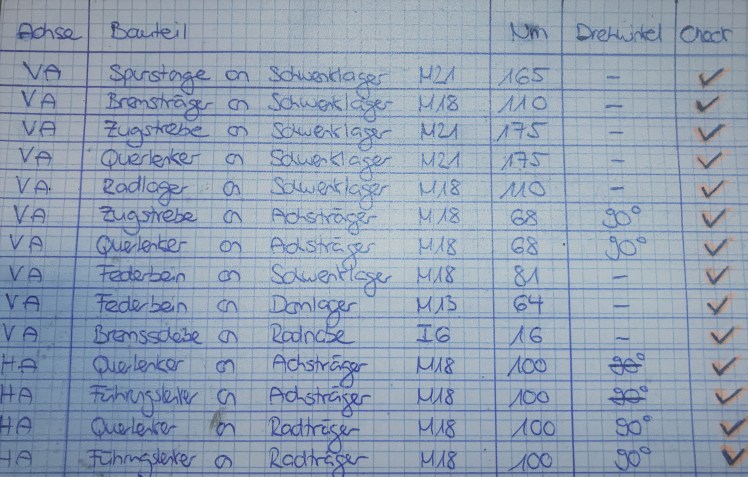 Achse Bauteil Nm Drehwinkel Check
VA Spurstange an Schwenklager M21 165 - ✓
VA Bremsträger an Schwenklager M18 110 - ✓
VA Zugstrebe an Schwenklager M21 175 - ✓
VA Querlenker an Schwenklager M21 175 - ✓
VA Radlager an Schwenklager M18 110 - ✓
VA Zugstrebe an Achsträger M18 68 90° ✓
VA Querlenker an Achsträger M18 68 90° ✓
VA Federbein an Schwenklager M18 81 - ✓
VA Federbein an Domlager M13 64 - ✓
VA Bremsscheibe an Radnabe I6 16 - ✓
HA Querlenker an Achsträger M18 100 90° ✓
HA Führungslenker an Achsträger M18 100 90° ✓
HA Querlenker an Radträger M18 100 90° ✓
HA Führungslenker an Radträger M18 100 90° ✓